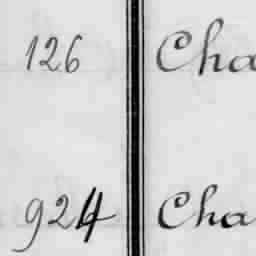 126 Cha
924 Cha